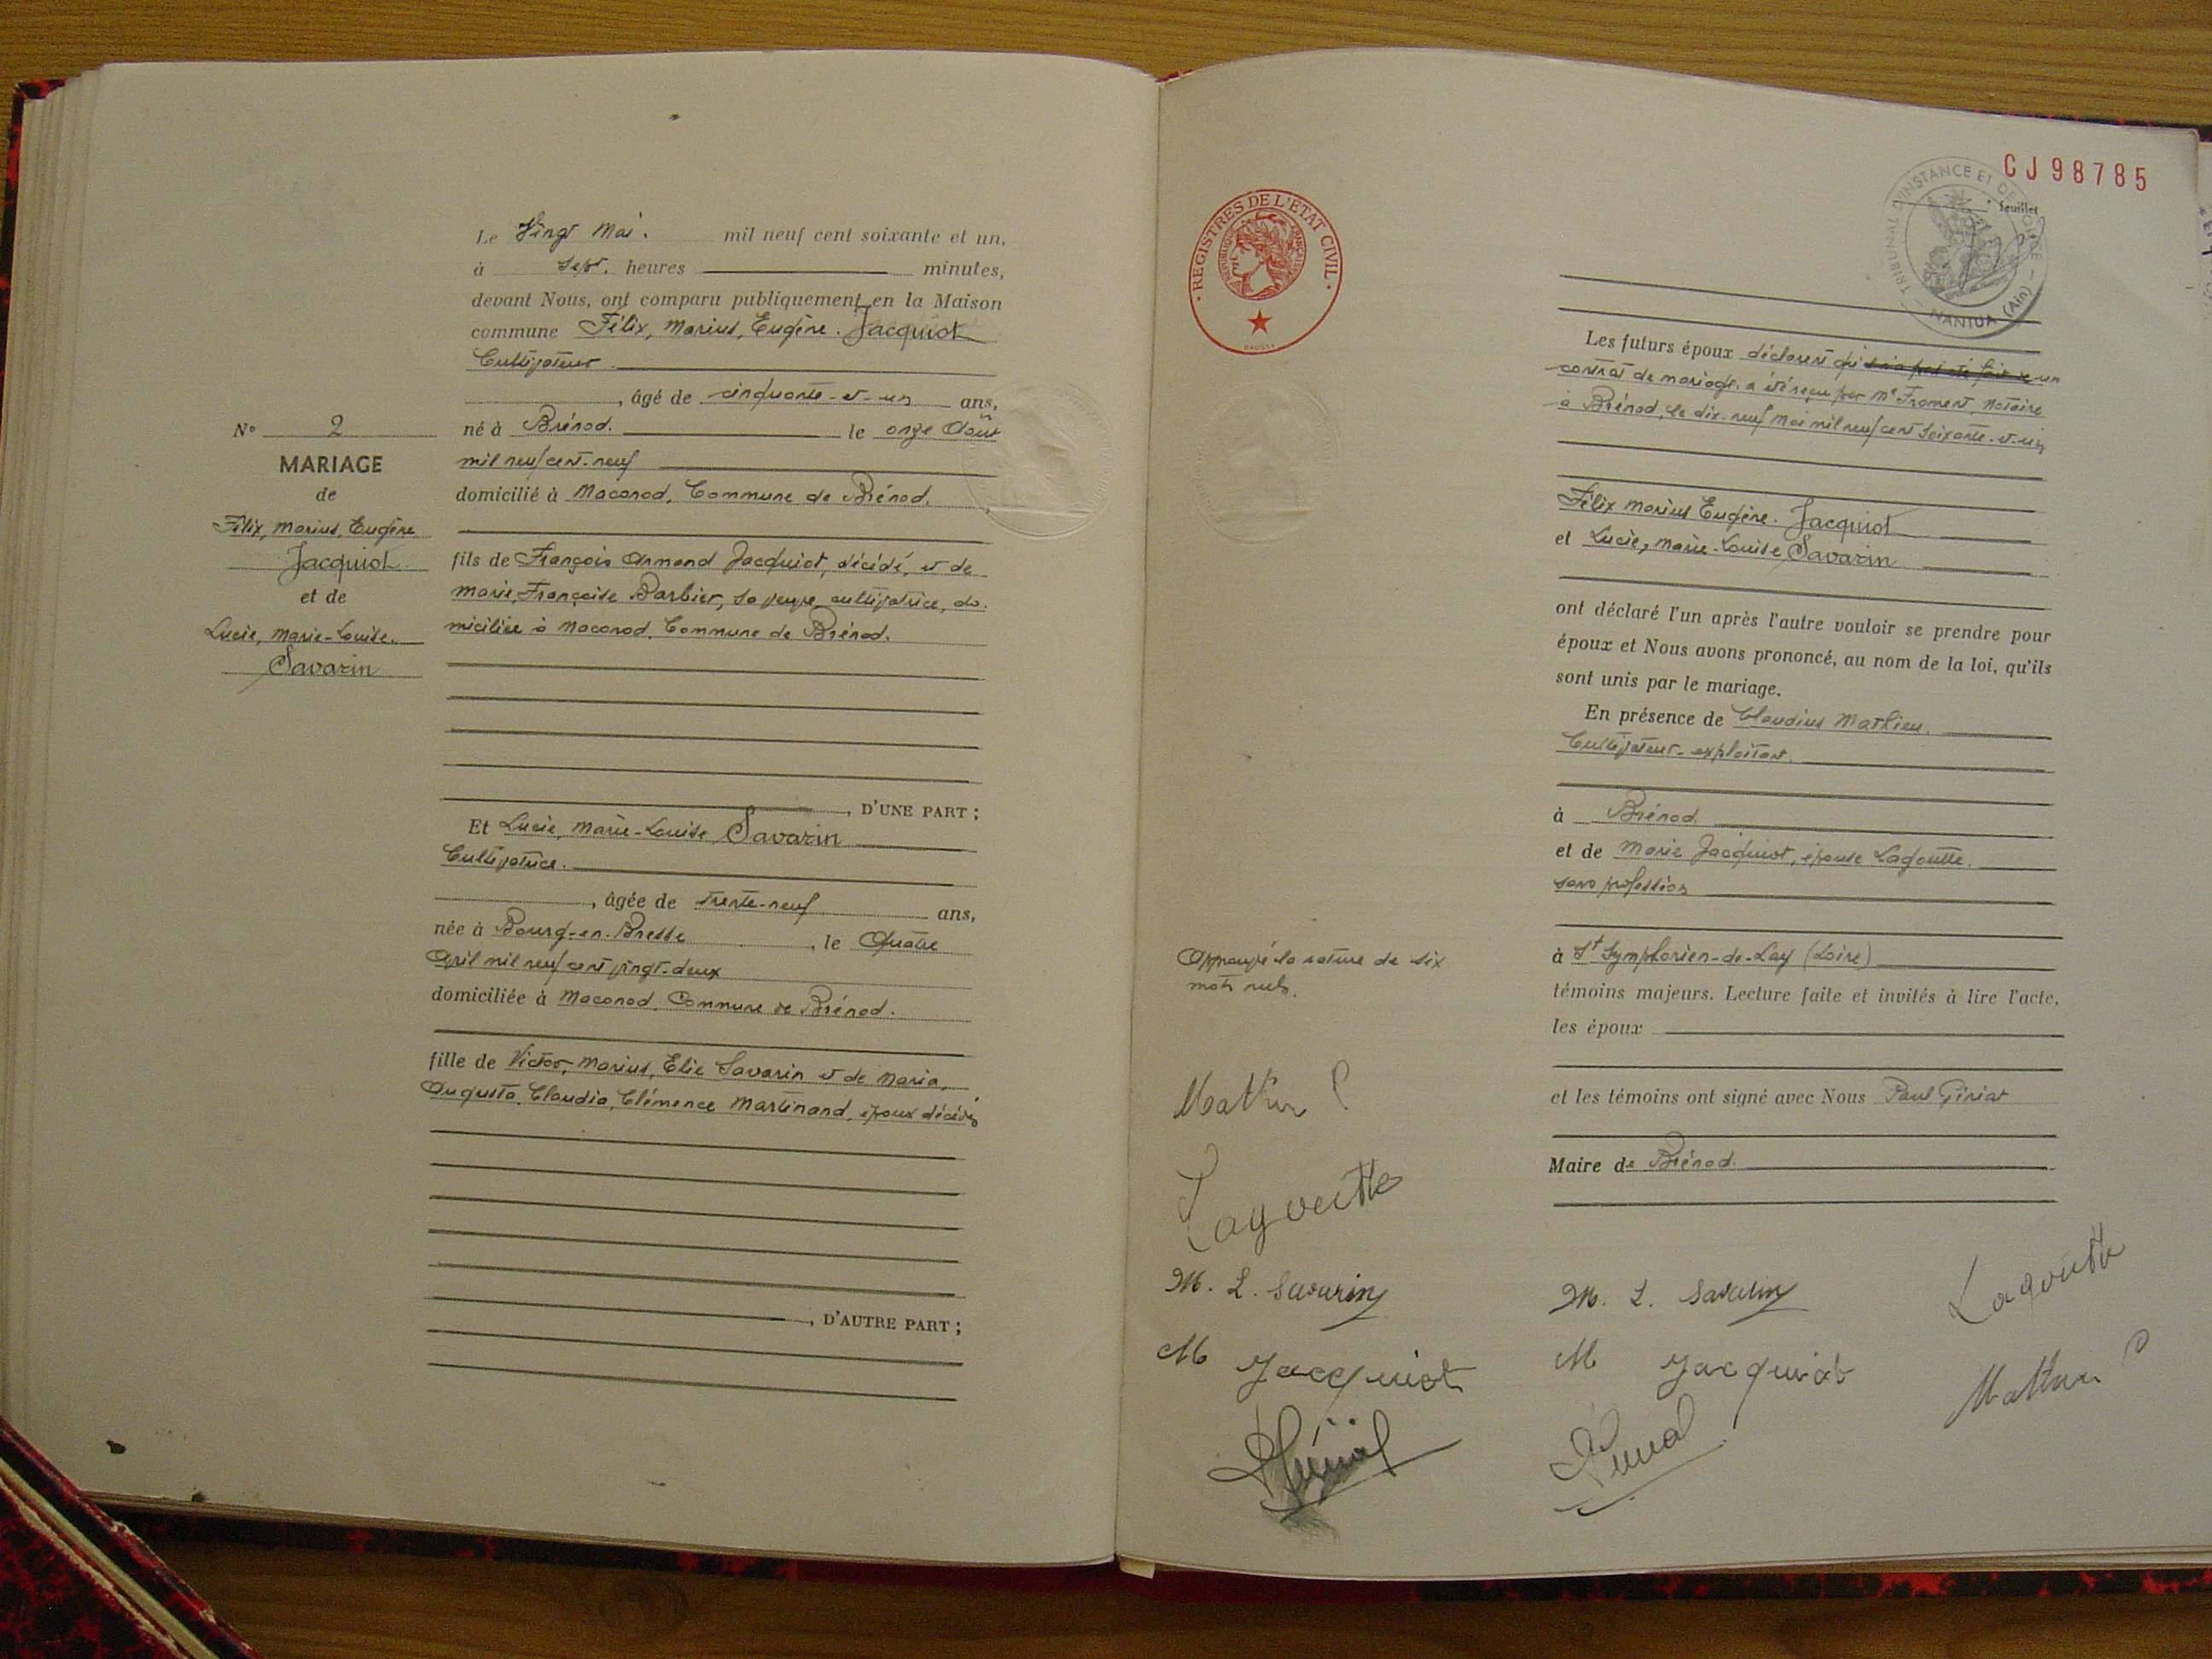 Le Vingt Mai. mil neuf cent soixante et un,
à Sept. heures minutes,
devant Nous, ont comparu publiquement en la Maison
commune Félix, Marius, Eugène. Jacquiot
Cultivateur
, âgé de cinquante-et-un ans,
né à Brénod. le onze Août
mil neuf cent-neuf
domicilié à Maconod, Commune de Brénod.
fils de François Armand Jacquiot, décédé, et de
Marie, Françoise Barbier, sa veuve, cultivatrice, do-
miciliée à Maconod, Commune de Brénod.
, D'UNE PART ;
Et Lucie, Marie-Louise Savarin
Cultivatrice.
, âgée de trente-neuf ans,
née à Bourg-en-Bresse , le Quatre
Avril mil neuf cent vingt-deux
domiciliée à Maconod, Commune de Brénod.
fille de Victor, Marius, Elie Savarin et de Maria,
Augusta, Claudia, Clémence Martinand, époux décédés
, D'AUTRE PART ;
N° 2
MARIAGE
de
Félix, Marius, Eugène
Jacquiot
et de
Lucie, Marie-Louise.
Savarin
CJ98785
feuillet
TRIBUNAL D'INSTANCE ET DE POLICE
NANTUA (Ain)
REGISTRES DE L'ETAT CIVIL
REPUBLIQUE FRANÇAISE
Les futurs époux déclarent qu'il n'a pas été fait de un
contrat de mariage, a été reçu par Me Froment, Notaire
à Brénod, le dix-neuf Mai mil neuf cent soixante-et-un
Félix Marius Eugène. Jacquiot
et Lucie, Marie-Louise Savarin
ont déclaré l'un après l'autre vouloir se prendre pour
époux et Nous avons prononcé, au nom de la loi, qu'ils
sont unis par le mariage.
En présence de Claudius Mathieu.
Cultivateur-exploitant.
à Brénod.
et de Marie Jacquiot, épouse Lagoutte.
sans profession
à St Symphorien-de-Lay (Loire)
témoins majeurs. Lecture faite et invités à lire l'acte,
les époux
et les témoins ont signé avec Nous Paul Piriat
Maire de Brénod.
Approuvé la rature de six
mots nuls.
Lagoutte
M. L. Savarin
M Jacquiot
M. L. Savarin
M Jacquiot
Lagoutte